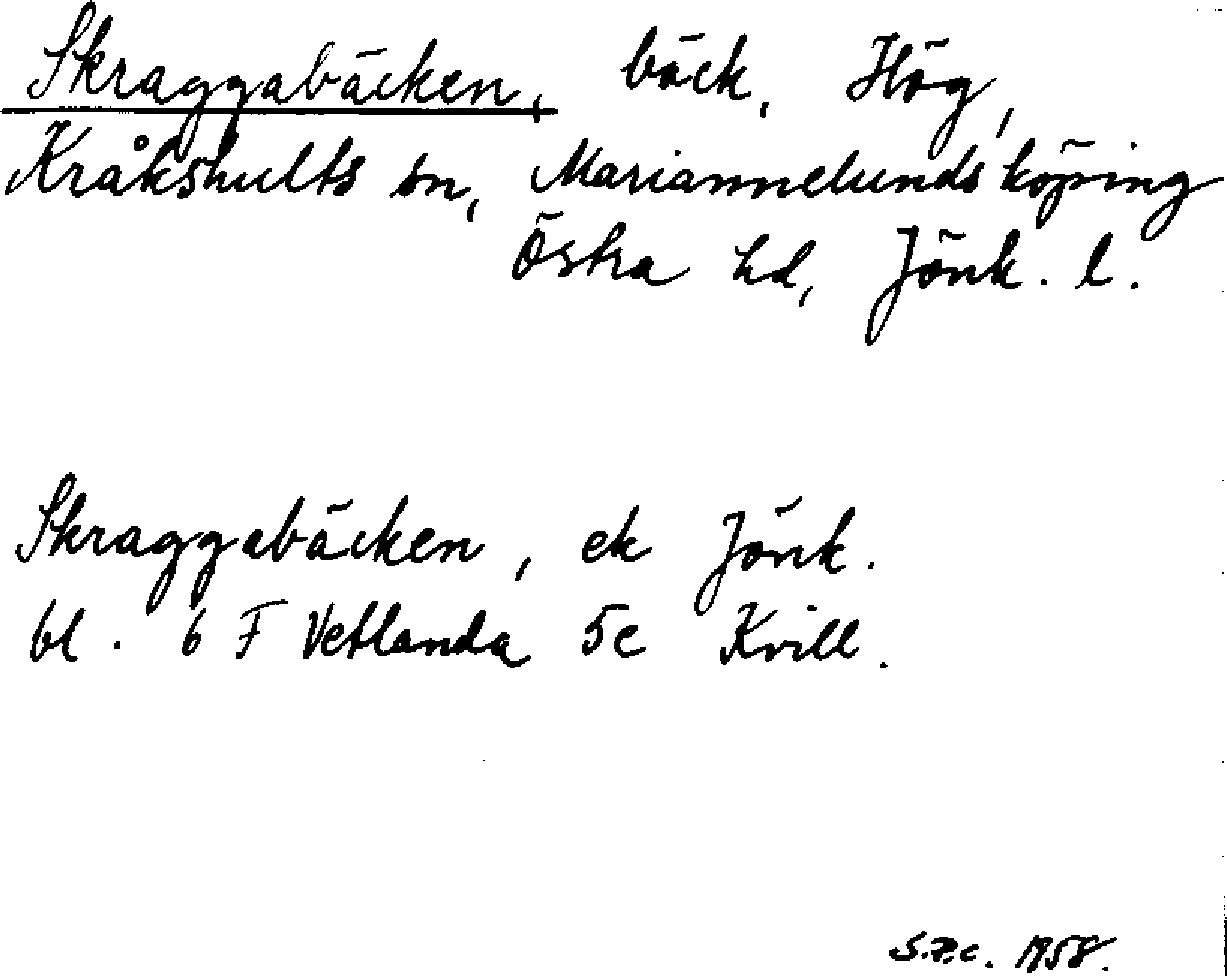 Skraggabäcken, bäck, Hög,
Kråkshults sn, Mariannelunds köping
Östra hd, Jönk. l.
Skraggabäcken, ek Jönk.
bl. 6 F Vetlanda 5c Kvill.
1958.